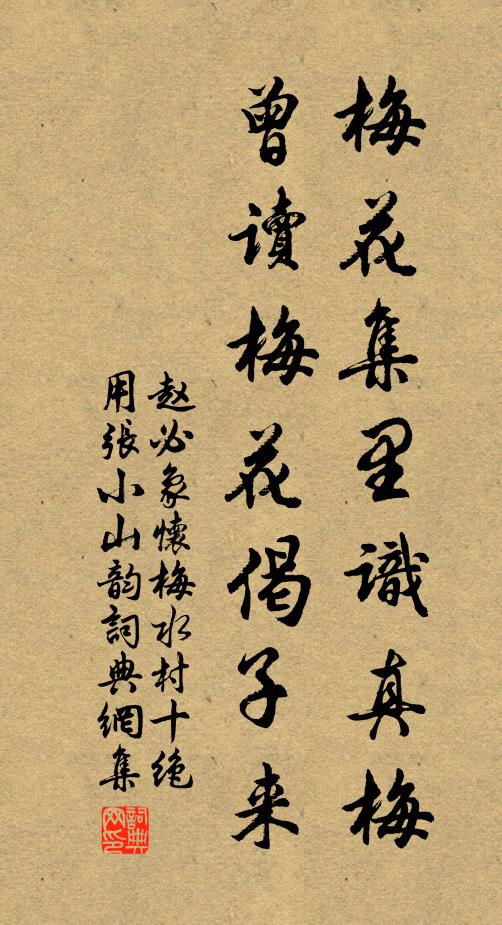 梅花集里識真梅
曾讀梅花偈子来
赵必象懷梅水村十绝
用張小山韵詞典網集
詞典网印